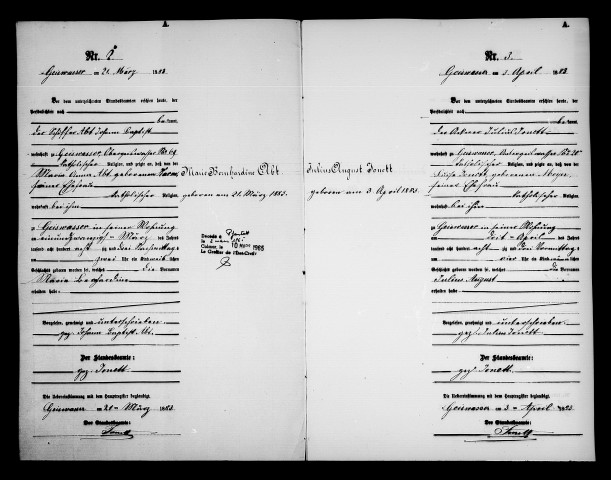 A.
Nr. 2
Geiswasser am 21. März 1883
Vor dem unterzeichneten Standesbeamten erschien heute, der
Persönlichkeit nach
bekannt,
der Schiffer Abt Johann Baptist
wohnhaft zu Geiswasser
katholischer Religion, und zeigte an, daß von der
Maria Anna Abt geborenen
seiner Ehefrau
katholischer Religion,
wohnhaft bei ihm
zu Geiswasser in seiner Wohnung
am einundzwanzigsten März des Jahres
tausend acht hundert achtzig und drei Nachmittags
um zwei Uhr ein Kind weiblichen
Geschlechts geboren worden sei, welches die Vornamen
Maria Bernhardine
erhalten habe
Vorgelesen, genehmigt und unterschrieben
gez. Johann Baptist Abt.
Der Standesbeamte:
gez. Jonett
Die Uebereinstimmung mit dem Hauptregister beglaubigt.
Geiswasser am 21. März 1883
Der Standesbeamte:
Jonett
Marie Bernhardine Abt
geboren am 21. März 1883.
Décédée à
le
Colmar, le 10 1965
Le Greffier de l'Etat-Civil:
Julius August Jonett
geboren am 3. April 1883.
A.
Nr. 3
Geiswasser am 3. April 1883
Vor dem unterzeichneten Standesbeamten erschien heute, der
Persönlichkeit nach
bekannt,
der Ackerer Julius Jonett
wohnhaft zu Geiswasser
katholischer Religion, und zeigte an, daß von der
Jonett geborenen Meyer
seiner Ehefrau
katholischer Religion,
wohnhaft bei ihm
zu Geiswasser in seiner Wohnung
am dritten April des Jahres
tausend acht hundert achtzig und drei Vormittags
um vier Uhr ein Kind männlichen
Geschlechts geboren worden sei, welches die Vornamen
Julius August
erhalten habe
Vorgelesen, genehmigt und unterschrieben
gez. Julius Jonett
Der Standesbeamte:
gez. Jonett
Die Uebereinstimmung mit dem Hauptregister beglaubigt.
Geiswasser am 3. April 1883
Der Standesbeamte:
Jonett